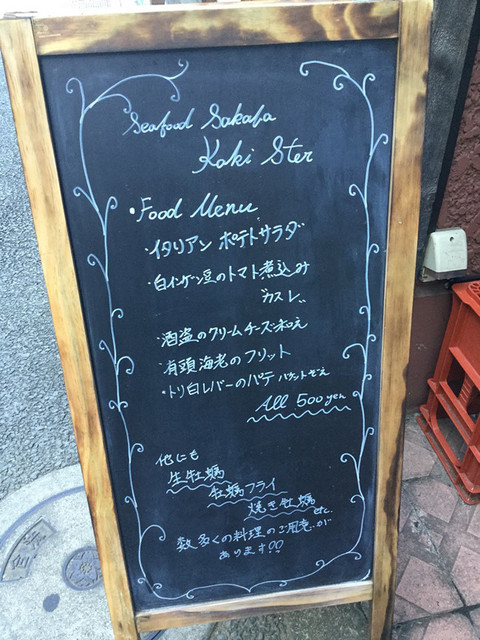 Seafood Sakaba
Kaki Ster
・Food Menu
・イタリアン ポテトサラダ
・白インゲン豆のトマト煮込み
カスレ
・酒盗のクリームチーズ和え
・有頭海老のフリット
・トリ白レバーのパテ バケットぞえ
All 500yen
他にも
生牡蠣
牡蠣フライ
焼き牡蠣
etc.
数多くの料理のご用意が
あります!!